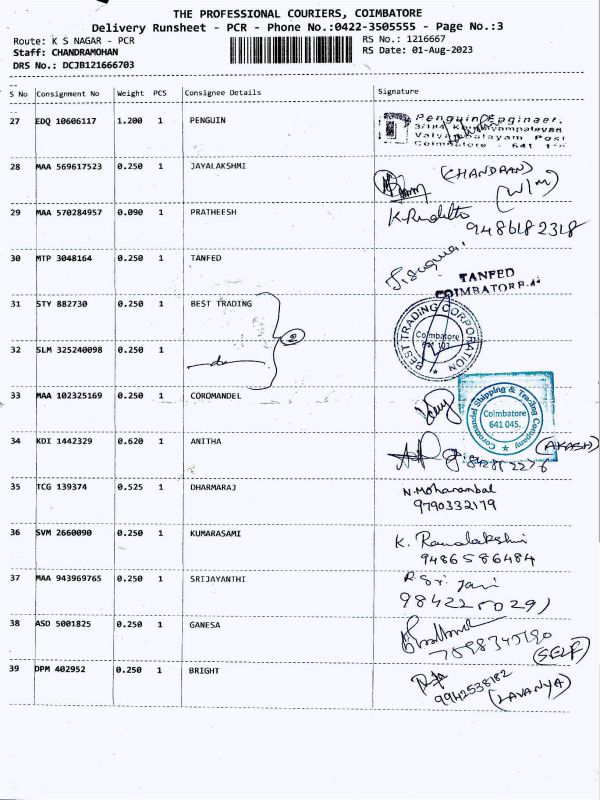 THE PROFESSIONAL COURIERS, COIMBATORE
Delivery Runsheet - PCR - Phone No.:0422-3505555 - Page No.:3
Route: K S NAGAR - PCR
RS No.: 1216667
Staff: CHANDRAMOHAN
RS Date: 01-Aug-2023
DRS No.: DCJB121666703
S No Consignment No Weight PCS Consignee Details Signature
27 EDQ 10606117 1.200 1 PENGUIN
Penguin Engineer.
Coimbatore - 641
28 MAA 569617523 0.250 1 JAYALAKSHMI
(CHANDRAN)
(W/M)
29 MAA 570284957 0.090 1 PRATHEESH
9486182318
30 MTP 3048164 0.250 1 TANFED
TANFED
COIMBATORE
31 STY 882730 0.250 1 BEST TRADING
BEST TRADING CORPORATION
Coimbatore
32 SLM 325240098 0.250 1
do
2
33 MAA 102325169 0.250 1 COROMANDEL
Coromandel Shipping & Trading Company
Coimbatore
641 045.
34 KDI 1442329 0.620 1 ANITHA
(AKASH)
35 TCG 139374 0.525 1 DHARMARAJ
N.Moharambal
9790332179
36 SVM 2660090 0.250 1 KUMARASAMI
K. Ramalakshmi
9486586484
37 MAA 943969765 0.250 1 SRIJAYANTHI
9842250291
38 ASD 5001825 0.250 1 GANESA
7598345190
(SELF)
39 DPM 402952 0.250 1 BRIGHT
9942538182
(LAVANYA)